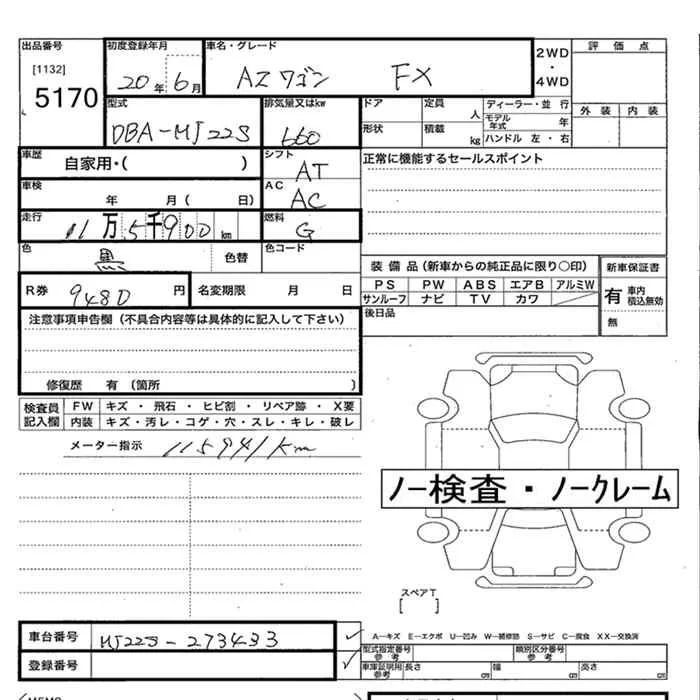 出品番号 初度登録年月 車名・グレード 2WD・4WD 評価点
[1132]
5170 20年 6月 AZワゴン FX
型式 排気量又はkw ドア 定員 人 ディーラー・並行 外装 内装
DBA-MJ22S 660 形状 積載 kg モデル年式 年
ハンドル 左・右
車歴 自家用・( ) シフト AT 正常に機能するセールスポイント
車検 年 月( 日) AC AC
走行 11万5千900km 燃料 G
色 黒 色替 色コード
装備品(新車からの純正品に限り〇印) 新車保証書
R券 9480円 名変期限 月 日 PS PW ABS エアB アルミW 有 車内積込無効
サンルーフ ナビ TV カワ
注意事項申告欄(不具合内容等は具体的に記入して下さい) 後日品 無
修復歴 有(箇所 )
検査員記入欄 FW キズ・飛石・ヒビ割・リペア跡・X要
内装 キズ・汚レ・コゲ・穴・スレ・キレ・破レ
メーター指示 115941km
ノー検査・ノークレーム
スペアT
[ ]
車台番号 MJ22S-273433 A―キズ E―エクボ U―凹み W―補修跡 S―サビ C―腐食 XX―交換済
型式指定番号 参考 類別区分番号 参考
登録番号 車庫証明用参考 長さ cm 幅 cm 高さ cm